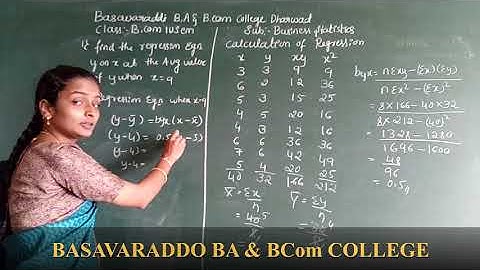 Basavaraddi B.A & B.com College Dharwad
Class:- B.com IV Sem
Sub:- Business Statistics
1) find the regression Eqn
y on x at the Avg value
of y when x=9
Regression Eqn when x=9
(y-ȳ) = byx (x-x̄)
(y-4) = 0.5 -5)
(y-4) =
y-4 =
Calculation of Regression
x y xy x²
3 3 9 9
6 2 12 36
5 3 15 25
4 5 20 16
4 3 12 16
6 6 36 36
7 6 42 49
5 4 20 25
40 32 166 212
x̄ = Σx/n
= 40 5
ȳ = Σy/n
4
byx = nΣxy-(Σx)(Σy)
nΣx²-(Σx)²
= 8×166-40×32
8×212-(40)²
= 1328-1280
1696-1600
= 48
96
= 0.5
BASAVARADDO BA & BCom COLLEGE